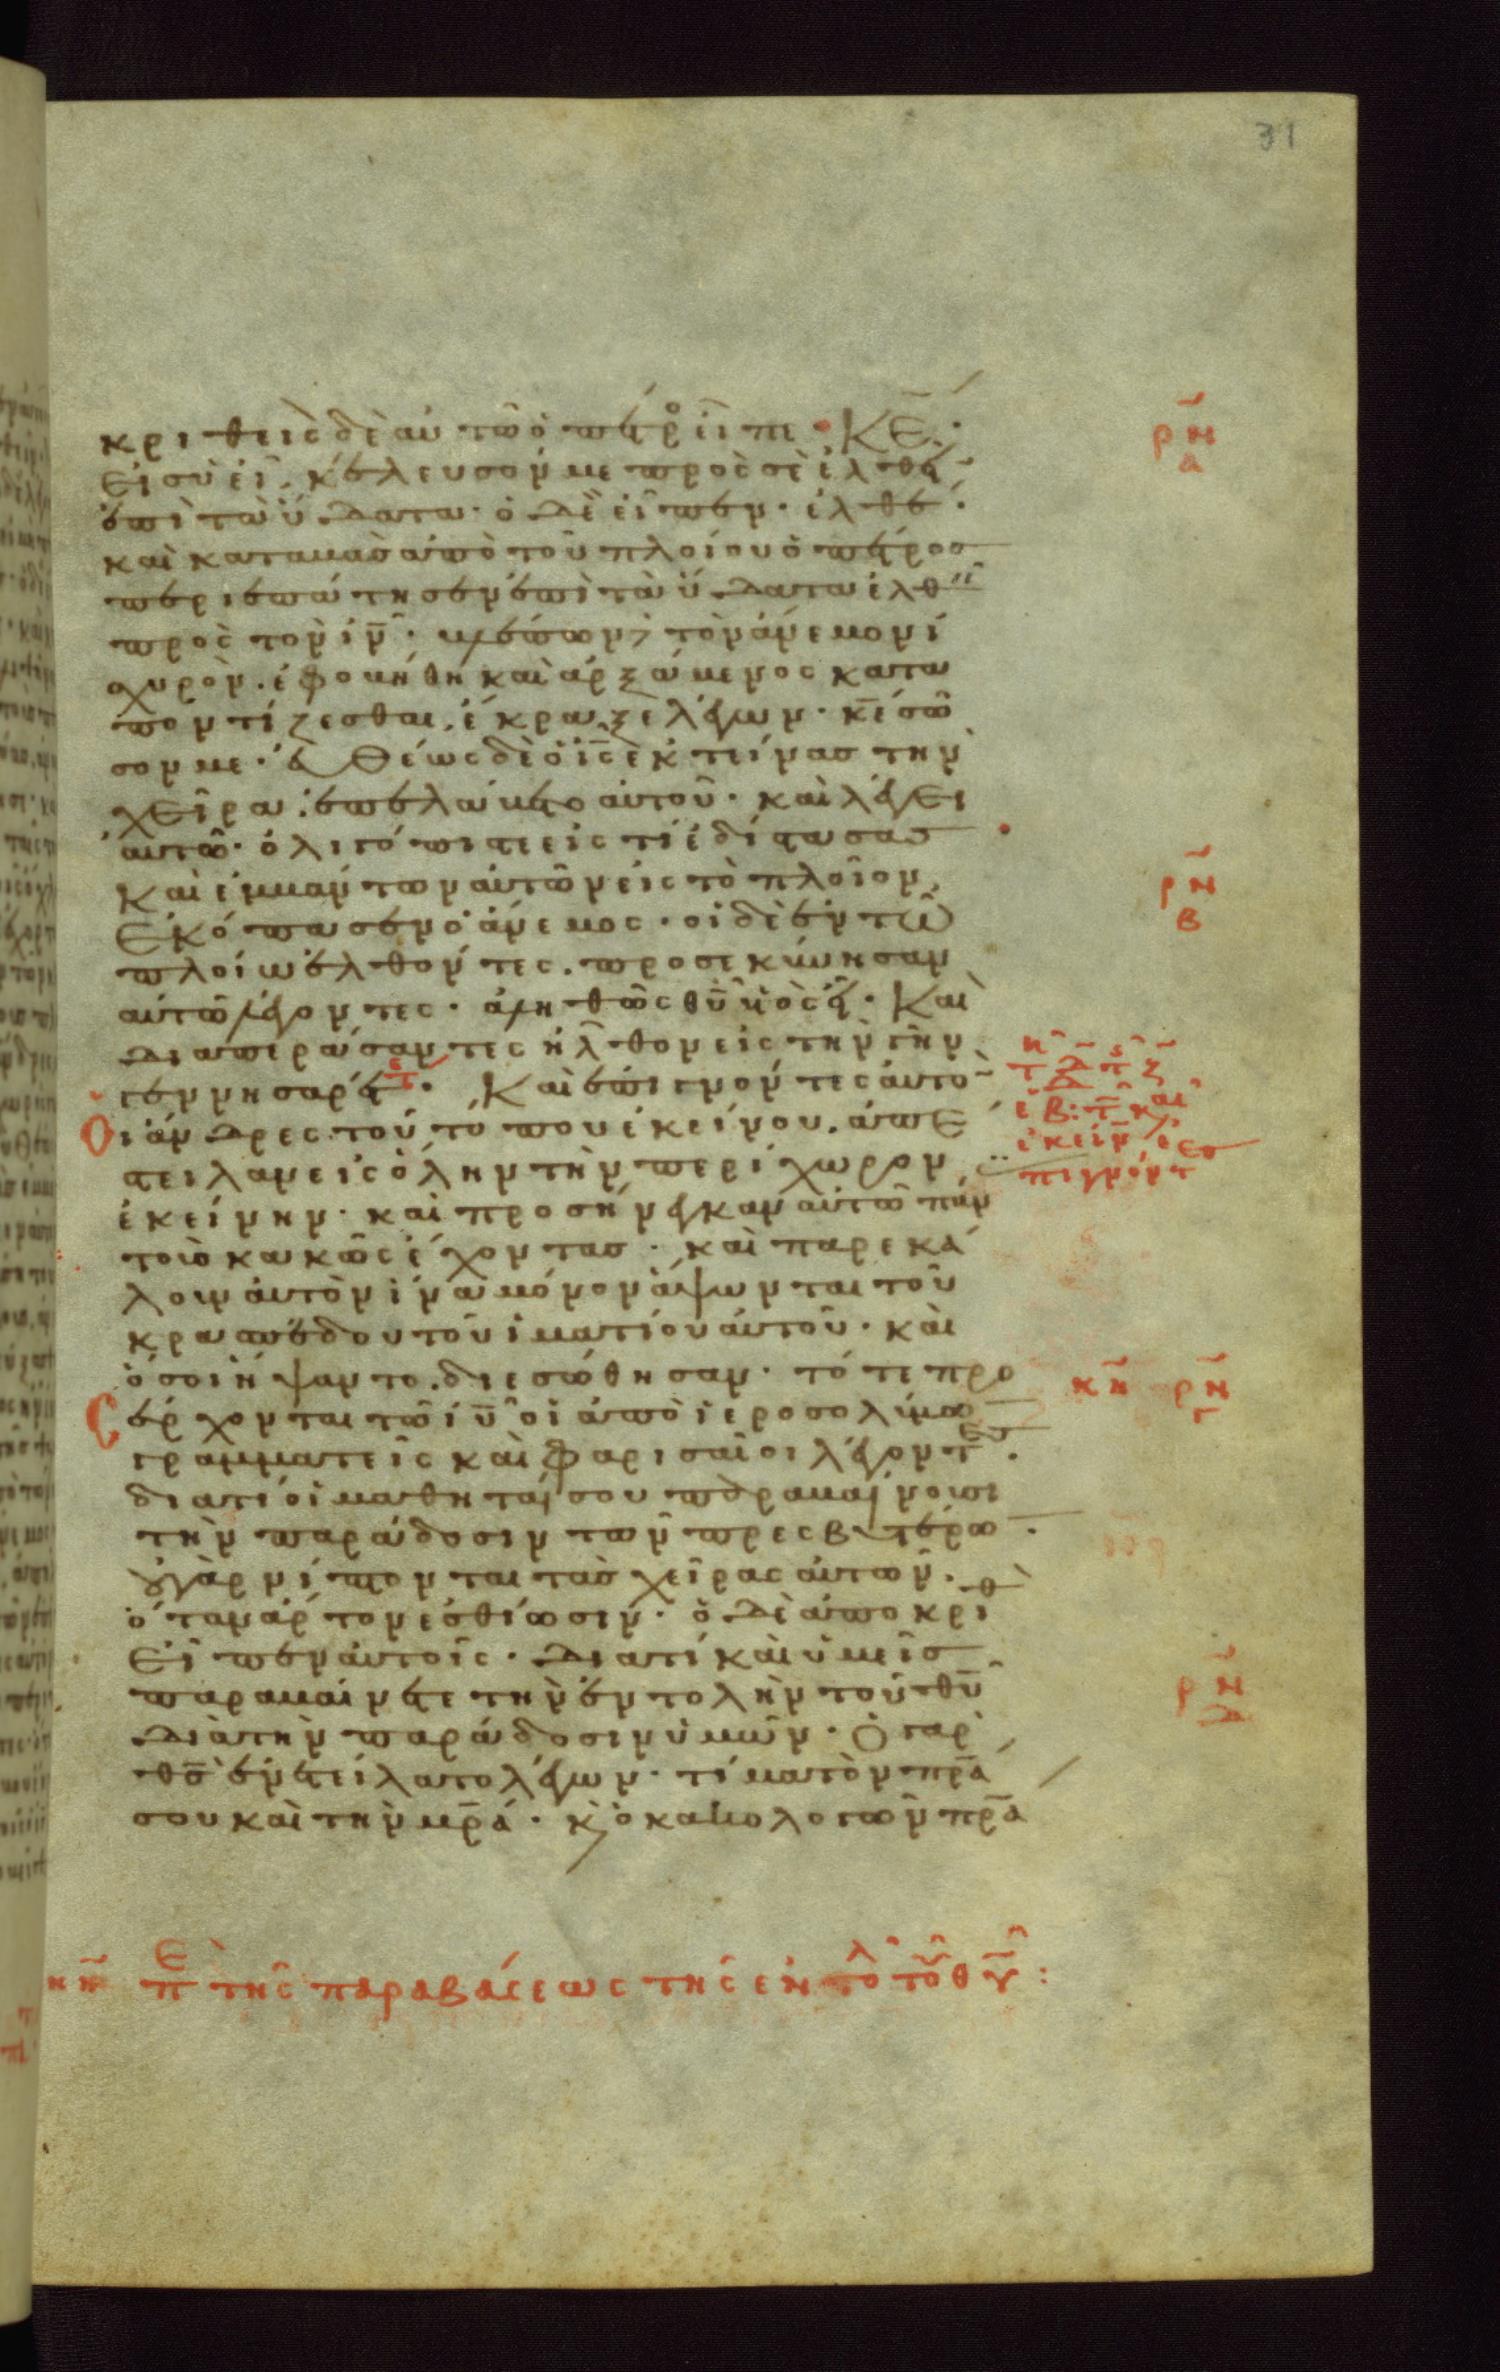 31
κριθεὶς δὲ αὐτῶ ὁ πέτρο εἶπε · Κ̅Ε̅ ·
Εἰ σὺ εἶ, κέλευσόν με πρὸς σὲ ἐλθεῖ
ἐπὶ τὰ ὕδατα · ὁ δὲ εἶπεν · ἐλθέ ·
καὶ καταβὰς ἀπὸ τοῦ πλοίου ὁ πέτρος
περιεπάτησεν ἐπὶ τὰ ὕδατα ἐλθεῖ
πρὸς τὸν ι̅ν̅ · βλέπων δὲ τὸν ἄνεμον ἰ
σχυρὸν · ἐφοβήθη καὶ ἀρξάμενος κατα
ποντίζεσθαι, ἔκραξε λέγων · κ̅ε̅ σῶ
σον με · εὐθέως δὲ ὁ ι̅ς̅ ἐκτείνας τὴν
χεῖρα, ἐπελάβετο αὐτοῦ · καὶ λέγει
αὐτῶ · ὀλιγόπιστε εἰς τί ἐδίστασας
Καὶ ἐμβάντων αὐτῶν εἰς τὸ πλοῖον,
Ἐκόπασεν ὁ ἄνεμος · οἱ δὲ ἐν τῶ
πλοίω ἐλθόντες · προσεκύνησαν
αὐτῶ λέγοντες · ἀληθῶς θ̅υ̅ υἱὸς εἶ · Καὶ
διαπεράσαντες ἦλθον εἰς τὴν γῆν
γεννησαρέτ · Καὶ ἐπιγνόντες αὐτὸ
Οἱ ἄνδρες τοῦ τόπου ἐκείνου · ἀπέ
στειλαν εἰς ὅλην τὴν περίχωρον
ἐκείνην · καὶ προσήνεγκαν αὐτῶ πάν
τας κακῶς ἔχοντας · καὶ παρεκά
λουν αὐτὸν ἵνα μόνον ἅψωνται τοῦ
κρασπέδου τοῦ ἱματίου αὐτοῦ · καὶ
ὅσοι ἥψαντο · διεσώθησαν · τότε προσ
έρχονται τῶ ι̅υ̅ οἱ ἀπὸ ἱεροσολύμω
γραμματεῖς καὶ φαρισαῖοι λέγοντες ·
διατί οἱ μαθηταί σου παραβαίνουσι
τὴν παράδοσιν τῶν πρεσβυτέρω ·
οὐ γὰρ νίπτονται τὰς χεῖρας αὐτῶν ·
ὅταν ἄρτον ἐσθίωσιν · ὁ δὲ ἀποκριθ
Εἶπεν αὐτοῖς · διατί καὶ ὑμεῖς
παραβαίνετε τὴν ἐντολὴν τοῦ θ̅υ̅
διὰ τὴν παράδοσιν ὑμῶν · Ὁ γὰρ
θ̅ς̅ ἐνετείλατο λέγων · τίμα τὸν π̅ρ̅α̅
σου καὶ τὴν μ̅ρ̅α̅ · κ ὁ κακολογῶν π̅ρ̅α̅
ρν
α
ρν
β
κη ρν
γ
ρν
δ
κη πε τῆς παραβάσεως τῆς ἐντολ τοῦ θ̅υ̅ :